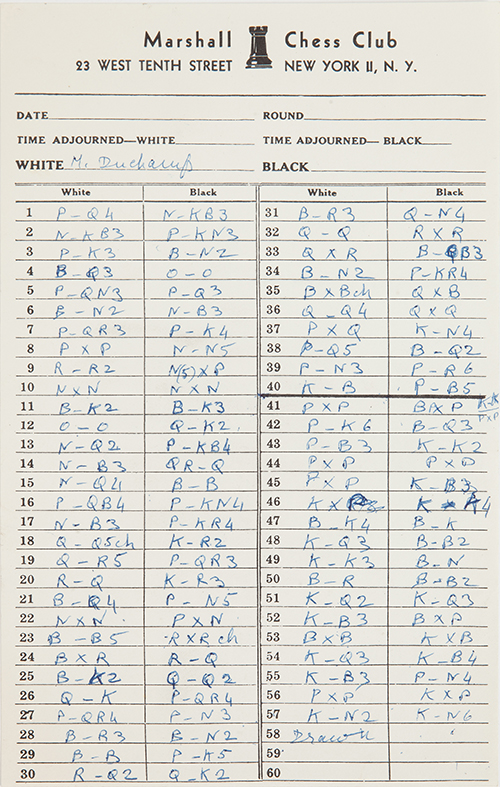 Marshall Chess Club
23 WEST TENTH STREET NEW YORK 11, N. Y.
DATE ROUND
TIME ADJOURNED—WHITE TIME ADJOURNED—BLACK
WHITE M. Duchamp BLACK
White Black White Black
1 P-Q4 N-KB3 31 B-R3 Q-N4
2 N-KB3 P-KN3 32 Q-Q RXR
3 P-K3 B-N2 33 QXR B-QB3
4 B-Q3 O-O 34 B-N2 P-KR4
5 P-QN3 P-Q3 35 BXBch QXB
6 B-N2 N-B3 36 Q-Q4 QXQ
7 P-QR3 P-K4 37 PXQ K-N4
8 PXP N-N5 38 P-Q5 B-Q2
9 R-R2 N(5)XP 39 P-N3 P-R6
10 NXN NXN 40 K-B P-B5
11 B-K2 B-K3 41 PXP BXP
12 O-O Q-K2 42 P-K6 B-Q3
13 N-Q2 P-KB4 43 P-B3 K-K2
14 N-B3 QR-Q 44 PXP PXP
15 N-Q4 B-B 45 PXP K-B3
16 P-QB4 P-KN4 46 KX K-K4
17 N-B3 P-KR4 47 B-K4 B-K
18 Q-Q5ch K-R2 48 K-Q3 B-B2
19 Q-R5 P-QR3 49 K-K3 B-N
20 R-Q K-R3 50 B-R B-B2
21 B-Q4 P-N5 51 K-Q2 K-Q3
22 NXN PXN 52 K-B3 BXP
23 B-B5 RXRch 53 BXB KXB
24 BXR R-Q 54 K-Q3 K-B4
25 B-K2 Q-Q2 55 K-B3 P-N4
26 Q-K P-QR4 56 PXP KXP
27 P-QR4 P-N3 57 K-N2 K-N6
28 B-R3 B-N2 58 Drawn
29 B-B P-K5 59
30 R-Q2 Q-K2 60